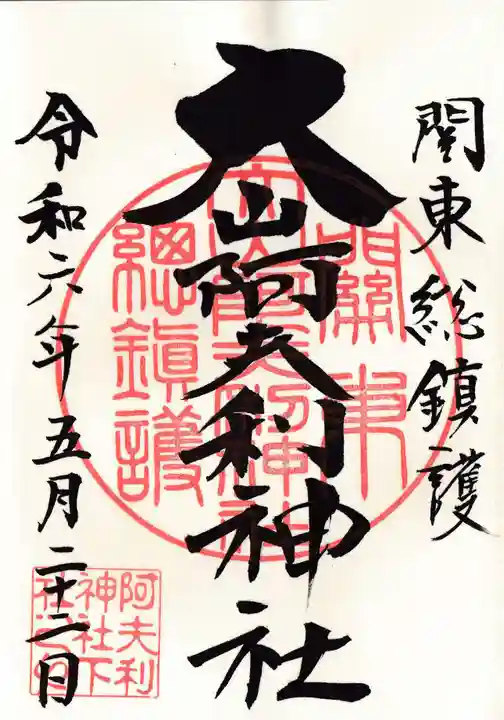 関東総鎮護
大山阿夫利神社
令和六年五月二十二日
關東
總鎮護
阿夫利
神社下
社之印